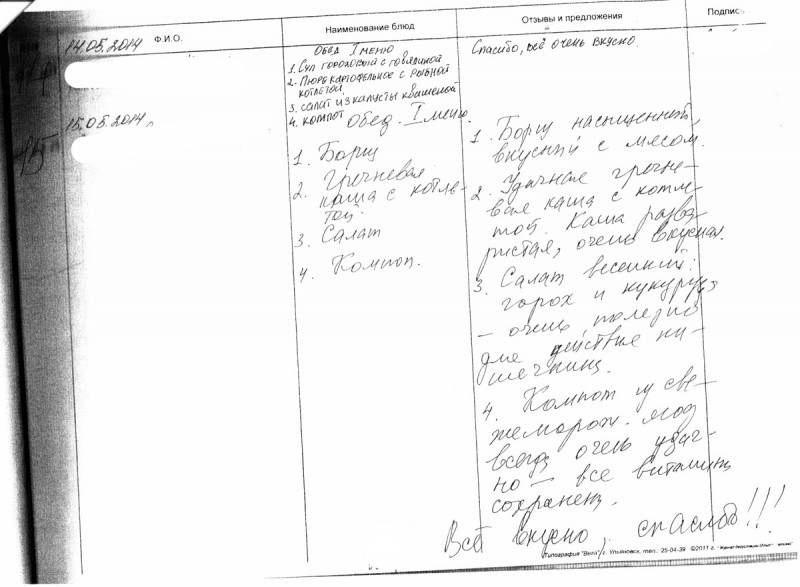 Ф.И.О.
Наименование блюд
Отзывы и предложения
Подпись
14.05.2014
Обед I меню
1. Суп гороховый с говядиной
2. Пюре картофельное с рыбной
котлетой
3. Салат из капусты квашеной
4. Компот
Спасибо, всё очень вкусно.
15.05.2014
Обед. I меню.
1. Борщ
2. Гречневая
каша с котле-
той.
3. Салат
4. Компот.
1. Борщ насыщенный,
вкусный с мясом.
2. Удачная гречне-
вая каша с котле-
той. Каша разва-
ристая, очень вкусная.
3. Салат весенний:
горох и кукуруза
– очень полезно
для действие ки-
шечника.
4. Компот из све-
жеморож. ягод
всегда очень удач-
но – все витамины
сохранены.
Всё вкусно, спасибо!!!
Типография "Вега" г. Ульяновск, тел.: 25-04-39 ©2011 г.